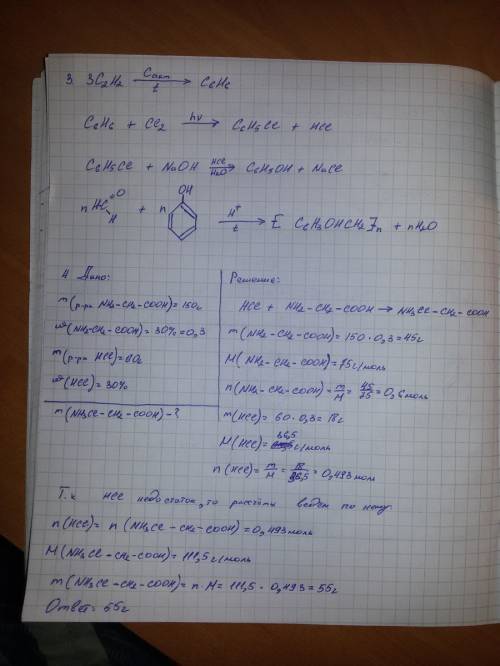 3. 3C2H2 —Cакт/t→ C6H6
C6H6 + Cl2 —hν→ C6H5Cl + HCl
C6H5Cl + NaOH —HCl/H2O→ C6H5OH + NaCl
n HC =O H + n OH —H+/t→ [ C6H3OHCH2 ]n + nH2O
4. Дано:
m(р-ра NH2-CH2-COOH)=150г
w(NH2-CH2-COOH)=30%=0,3
m(р-ра HCl)=60г
w(HCl)=30%
m(NH3Cl-CH2-COOH)-?
Решение:
HCl + NH2-CH2-COOH → NH3Cl-CH2-COOH
m(NH2-CH2-COOH)=150·0,3=45г
M(NH2-CH2-COOH)=75г/моль
n(NH2-CH2-COOH)=m/M=45/75=0,6моль
m(HCl)=60·0,3=18г
M(HCl)=36,5г/моль
n(HCl)=m/M=18/36,5=0,493моль
Т.к HCl недостаток, то рассчёты ведем по нему:
n(HCl)= n(NH3Cl-CH2-COOH)=0,493моль
M(NH3Cl-CH2-COOH)=111,5г/моль
m(NH3Cl-CH2-COOH)=n·M=111,5·0,493=55г
Ответ: 55г